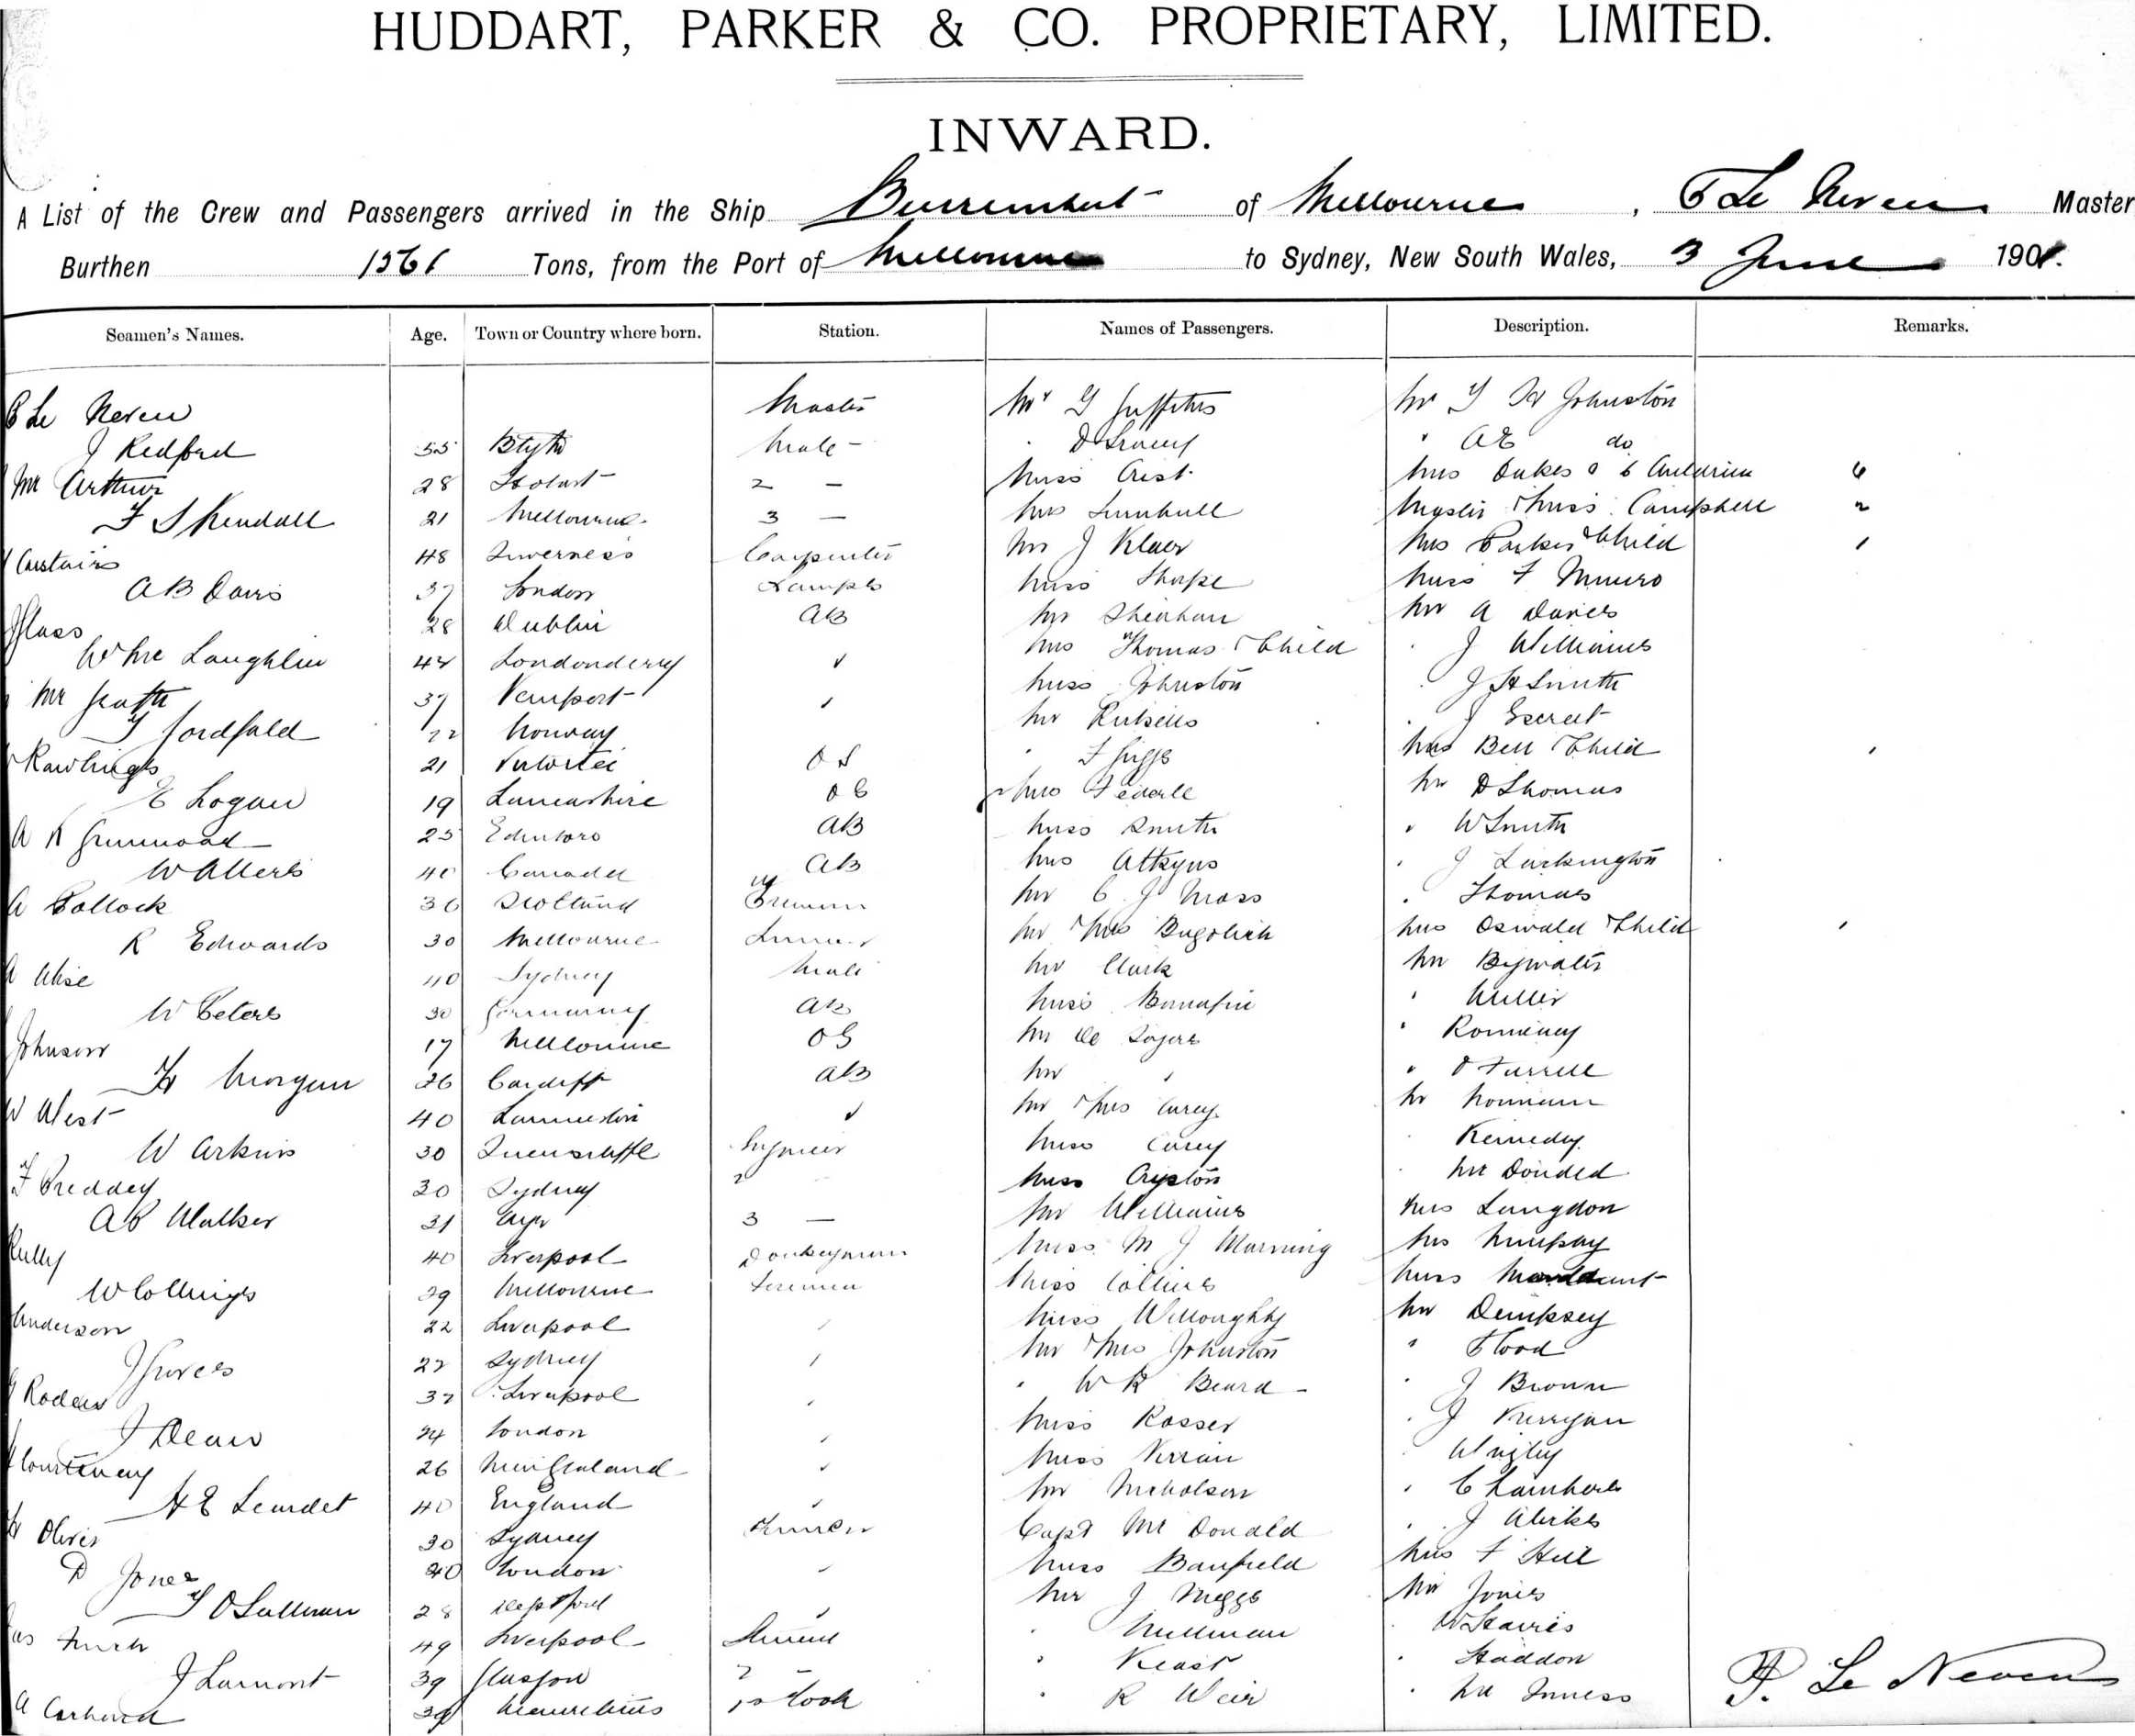 HUDDART, PARKER & CO. PROPRIETARY, LIMITED.
INWARD.
A List of the Crew and Passengers arrived in the Ship Burrumbeet of Melbourne, Le Neveu Master
Burthen 1561 Tons, from the Port of Melbourne to Sydney, New South Wales, 3 June 1901.
Seamen's Names. Age. Town or Country where born. Station. Names of Passengers. Description. Remarks.
Le Neveu Master Mr G Griffiths Mr T W Johnston
J Redford 55 Blyth Mate - " D Tracey " A E do
Mc Arthur 28 Hobart 2 - Miss Crist Mrs Dukes & 6 Children 6
F S Kendall 21 Melbourne 3 - Mrs Turnbull Master & Miss Campbell 2
Carstairs 48 Inverness Carpenter Mr J Klaer Mrs Parker & Child 1
A B Davis 37 London Lamps Miss Sharpe Miss F Munro
Glass 28 Dublin AB Mr Sheahan Mr A Davies
W McLaughlin 44 Londonderry Mrs Thomas & Child " J Williams
McGrath 37 Newport Miss Johnston " J H Smith
T Fordfald 22 Norway Mr
Rawlings 21 Victoria OS " F Griggs Mrs Bell & Child 1
E Logan 19 Lancashire OS Mrs Federle Mr D Thomas
A K Grunwoad 25 Edinboro AB Miss Smith " W Smith
W Allers 40 Canada AB Mrs Atkyns " J Larkington
A Pollock 36 Scotland Mr C J Moss " Thomas
R Edwards 30 Melbourne Mr & Mrs Bugolich Mrs Oswald & Child 1
A Wise 40 Sydney Mr Clark Mr Bywater
W Peters 30 Germany AB Miss Bonafin " Miller
Johnson 17 Melbourne OS Mr De Sagers " Romeney
H Morgan 26 Cardiff AB Mr " " D Farrell
W West 40 Launceston Mr & Mrs Carey Mr Normann
W Arkins 30 Queenscliffe Engineer Miss Carey " Kennedy
F Preddey 30 Sydney 2 Miss Cryston " McDonald
A B Walker 31 Ayr 3 - Mr Williams Mrs Langdon
Kelly 40 Liverpool Donkeyman Miss M J Manning Mrs Murphy
W Collings 29 Melbourne Firemen Miss Collins Miss
Anderson 22 Liverpool Miss Willoughby Mr Dempsey
J Gurers 22 Sydney Mr & Mrs Johnston " Flood
Roders 37 Liverpool " W R Beard - " J Brown
J Dean 24 London Miss Rosser " J Kerrigan
Courtenay 26 New Zealand Miss Verran " Wrigley
H E Leardet 40 England Mr Nicholson " C Lambert
H Oliver 30 Sydney Trimmer Capt McDonald " J Wirkes
D Jones 40 London Miss Banfield Mrs F Hill
T O Sullivan 28 Deptford Mr J Meggs Mr Jones
Finch 49 Liverpool Steward " Millman " W Harris
J Lamont 39 Glasgow 2 - " Keast " Haddon
A 38 Mauritius 1st Cook " R Weir " McInness
P. Le Neveu